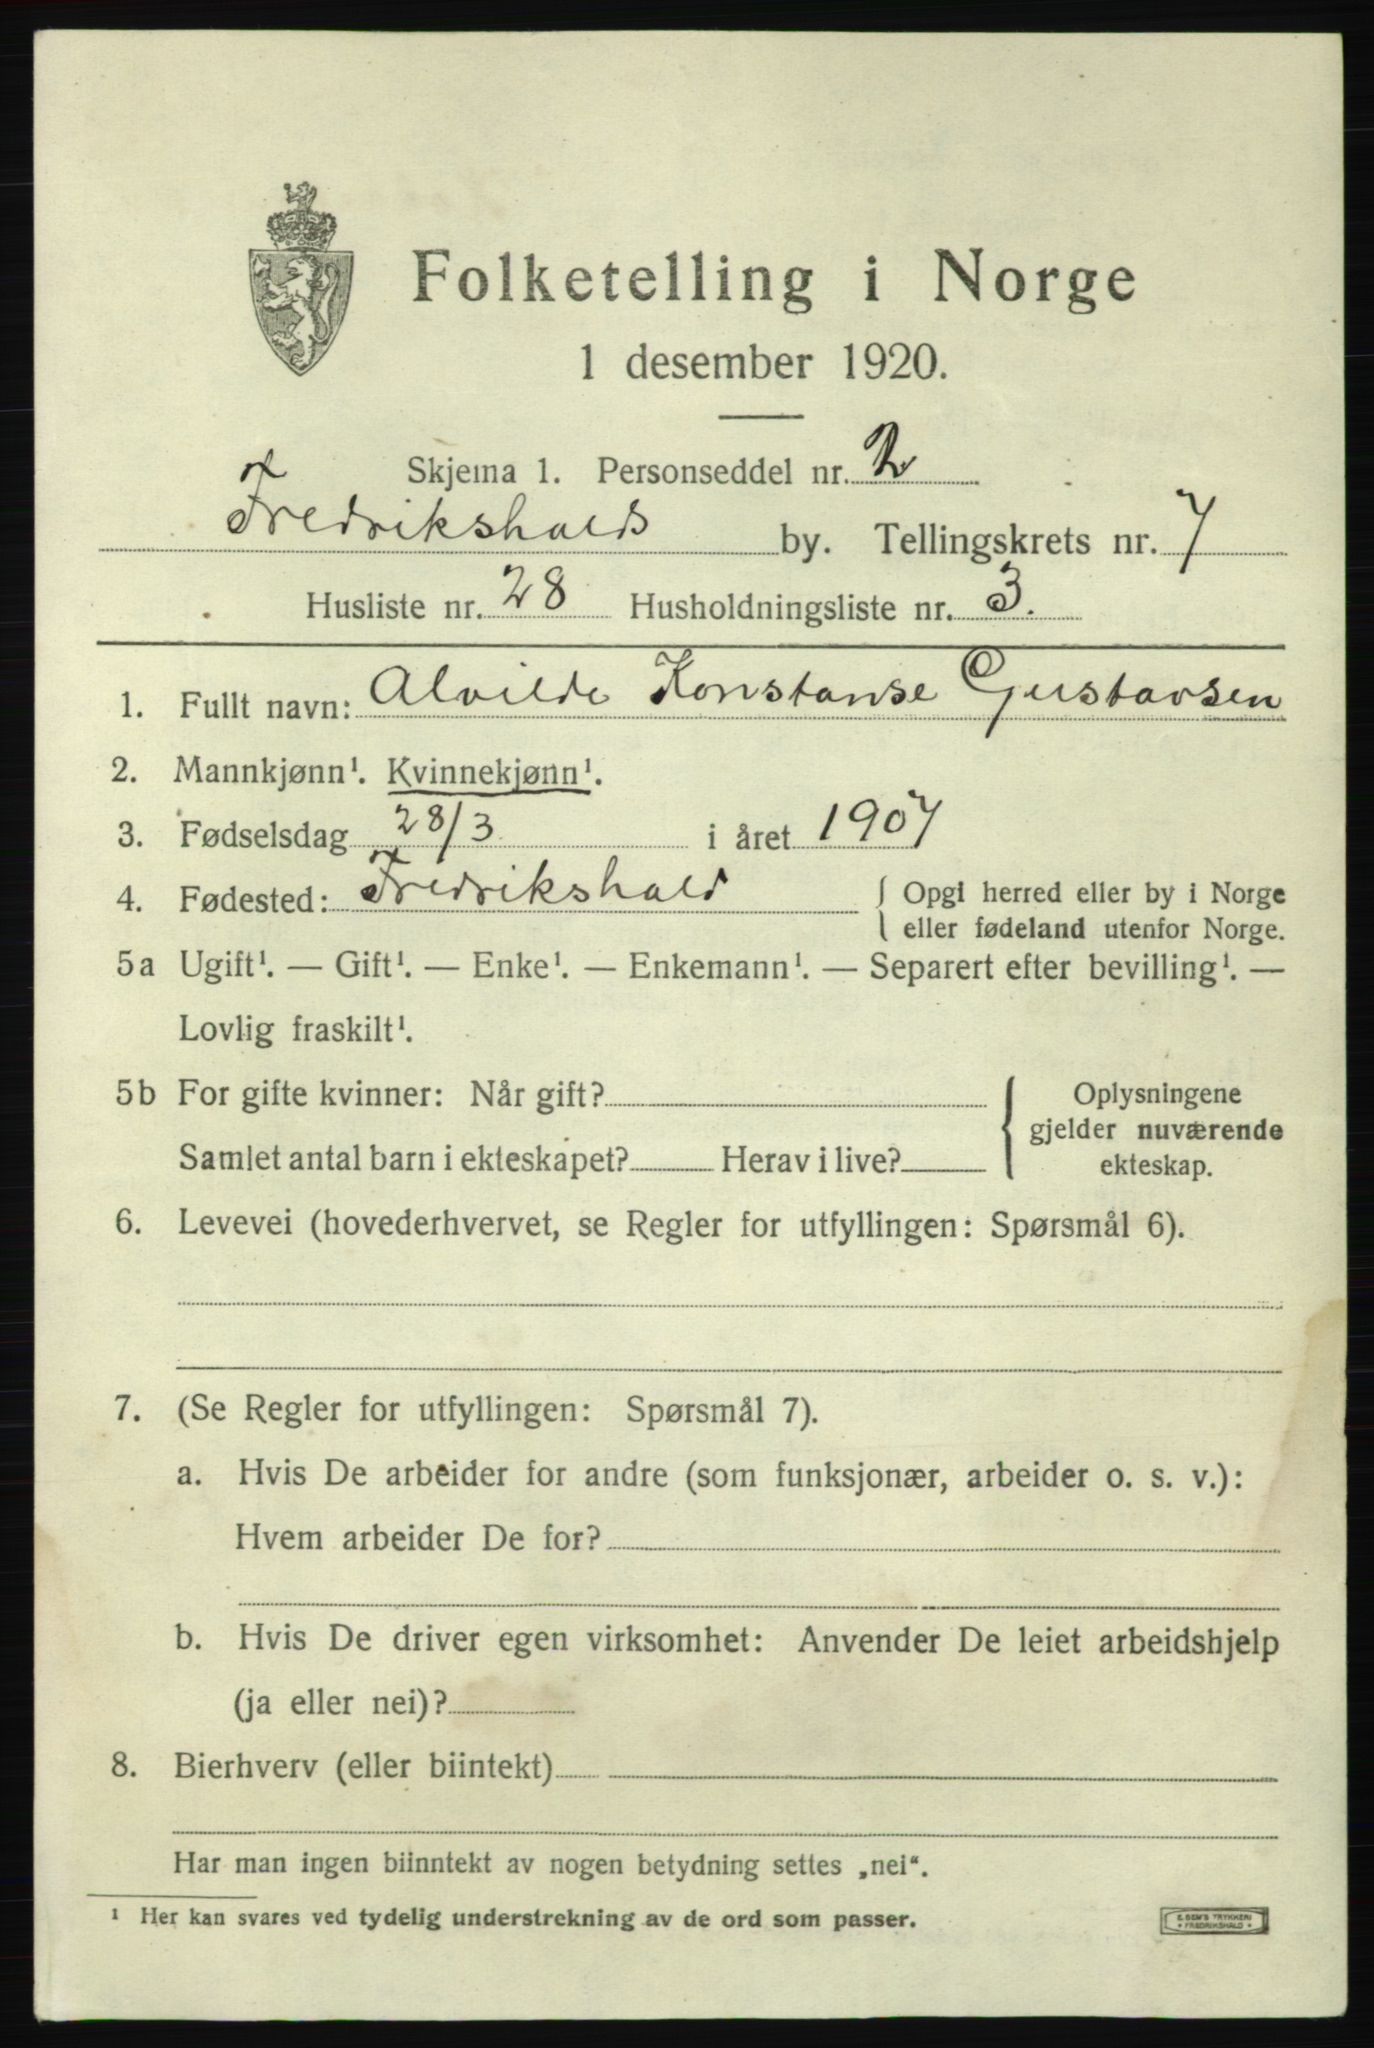 Folketelling i Norge
1 desember 1920.
Skjema 1. Personseddel nr. 2
Fredrikshalds by. Tellingskrets nr. 7
Husliste nr. 28 Husholdningsliste nr. 3.
1. Fullt navn: Alvilde Konstanse Gustavsen
2. Mannkjønn¹. Kvinnekjønn¹.
3. Fødselsdag 28/3 i året 1907
4. Fødested: Fredrikshald { Opgi herred eller by i Norge
eller fødeland utenfor Norge.
5a Ugift¹. — Gift¹. — Enke¹. — Enkemann¹. — Separert efter bevilling¹. —
Lovlig fraskilt¹.
5b For gifte kvinner: Når gift? { Oplysningene
gjelder nuværende
Samlet antal barn i ekteskapet? Herav i live? ekteskap.
6. Levevei (hovederhvervet, se Regler for utfyllingen: Spørsmål 6).
7. (Se Regler for utfyllingen: Spørsmål 7).
a. Hvis De arbeider for andre (som funksjonær, arbeider o. s. v.):
Hvem arbeider De for?
b. Hvis De driver egen virksomhet: Anvender De leiet arbeidshjelp
(ja eller nei)?
8. Bierhverv (eller biintekt)
Har man ingen biinntekt av nogen betydning settes „nei“.
¹ Her kan svares ved tydelig understrekning av de ord som passer.
E. SEM'S TRYKKERI
• FREDRIKSHALD •